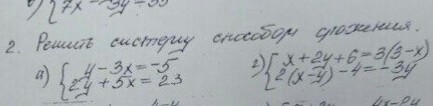 2. Решить систему способом сложения.
а) { y - 3x = -5
2y + 5x = 23
г) { x + 2y + 6 = 3(3 - x)
2(x - y) - 4 = -3y